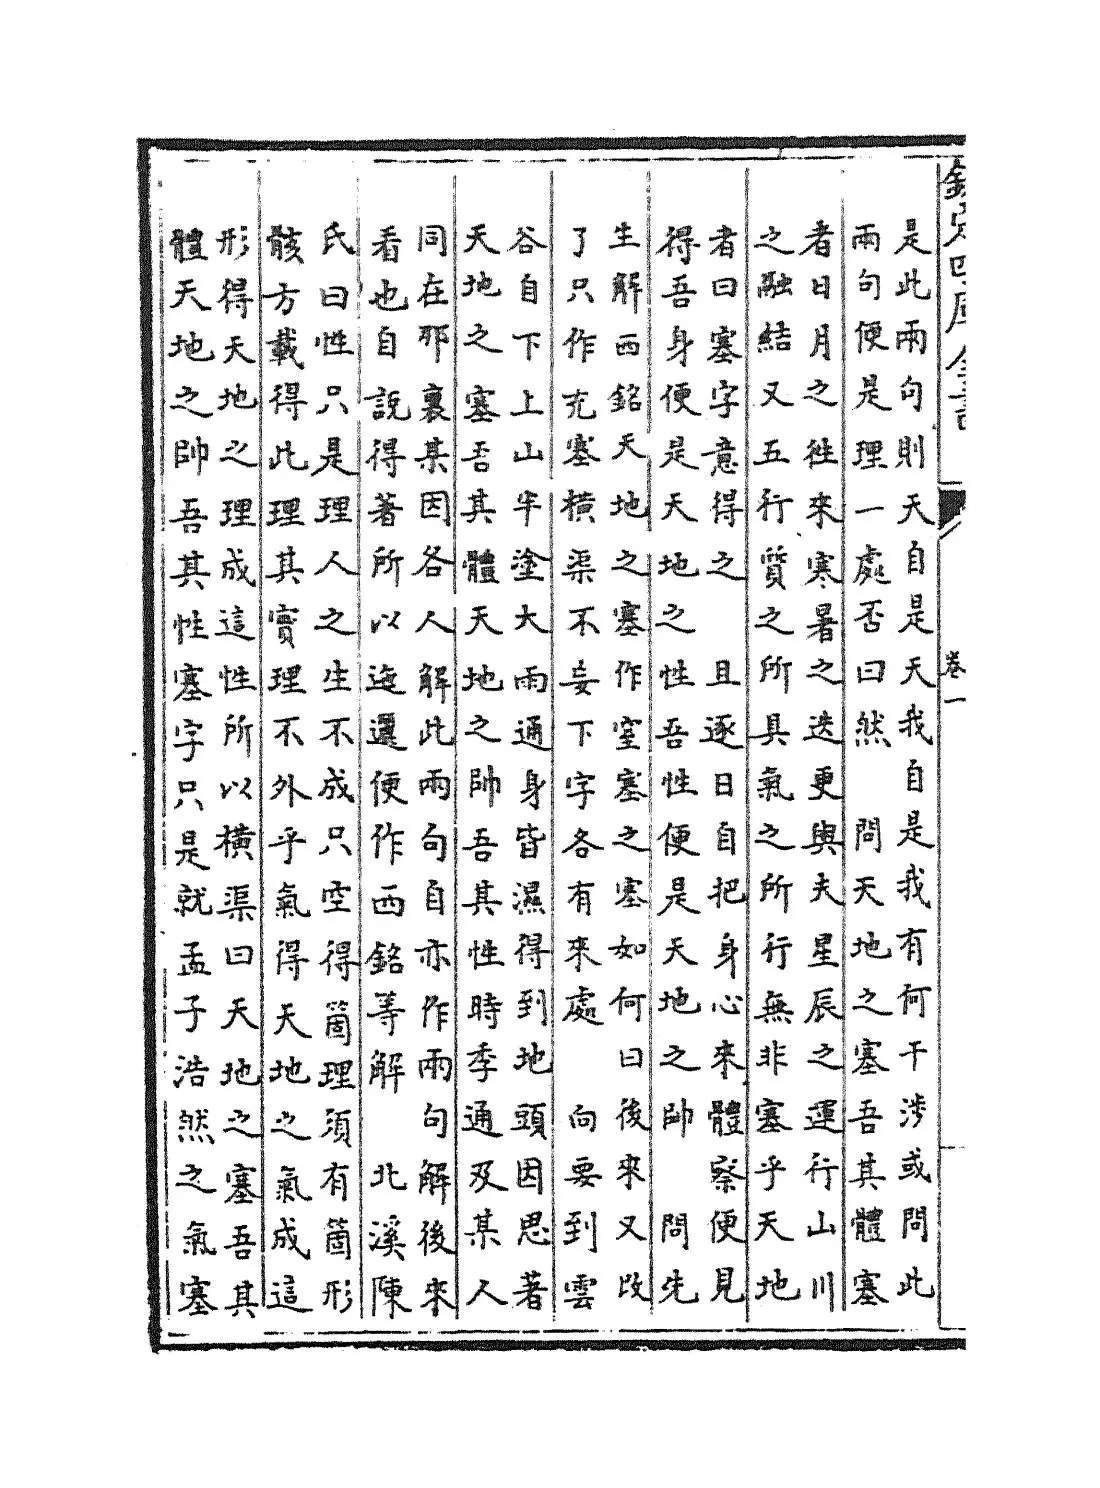 欽定四庫全書
卷一
是此兩句則天自是天我自是我有何干涉或問此
兩句便是理一處否曰然　問天地之塞吾其體塞
者日月之徃來寒暑之迭更與夫星辰之運行山川
之融結又五行質之所具氣之所行無非塞乎天地
者曰塞字意得之　且逐日自把身心來體察便見
得吾身便是天地之性吾性便是天地之帥　問先
生解西銘天地之塞作窒塞之塞如何曰後來又改
了只作充塞橫渠不妄下字各有來處　向要到雲
谷自下上山半塗大雨通身皆濕得到地頭因思著
天地之塞吾其體天地之帥吾其性時季通及某人
同在那裏某因各人解此兩句自亦作兩句解後來
看也自說得著所以迤邐便作西銘等解　北溪陳
氏曰性只是理人之生不成只空得箇理須有箇形
骸方載得此理其實理不外乎氣得天地之氣成這
形得天地之理成這性所以橫渠曰天地之塞吾其
體天地之帥吾其性塞字只是就孟子浩然之氣塞